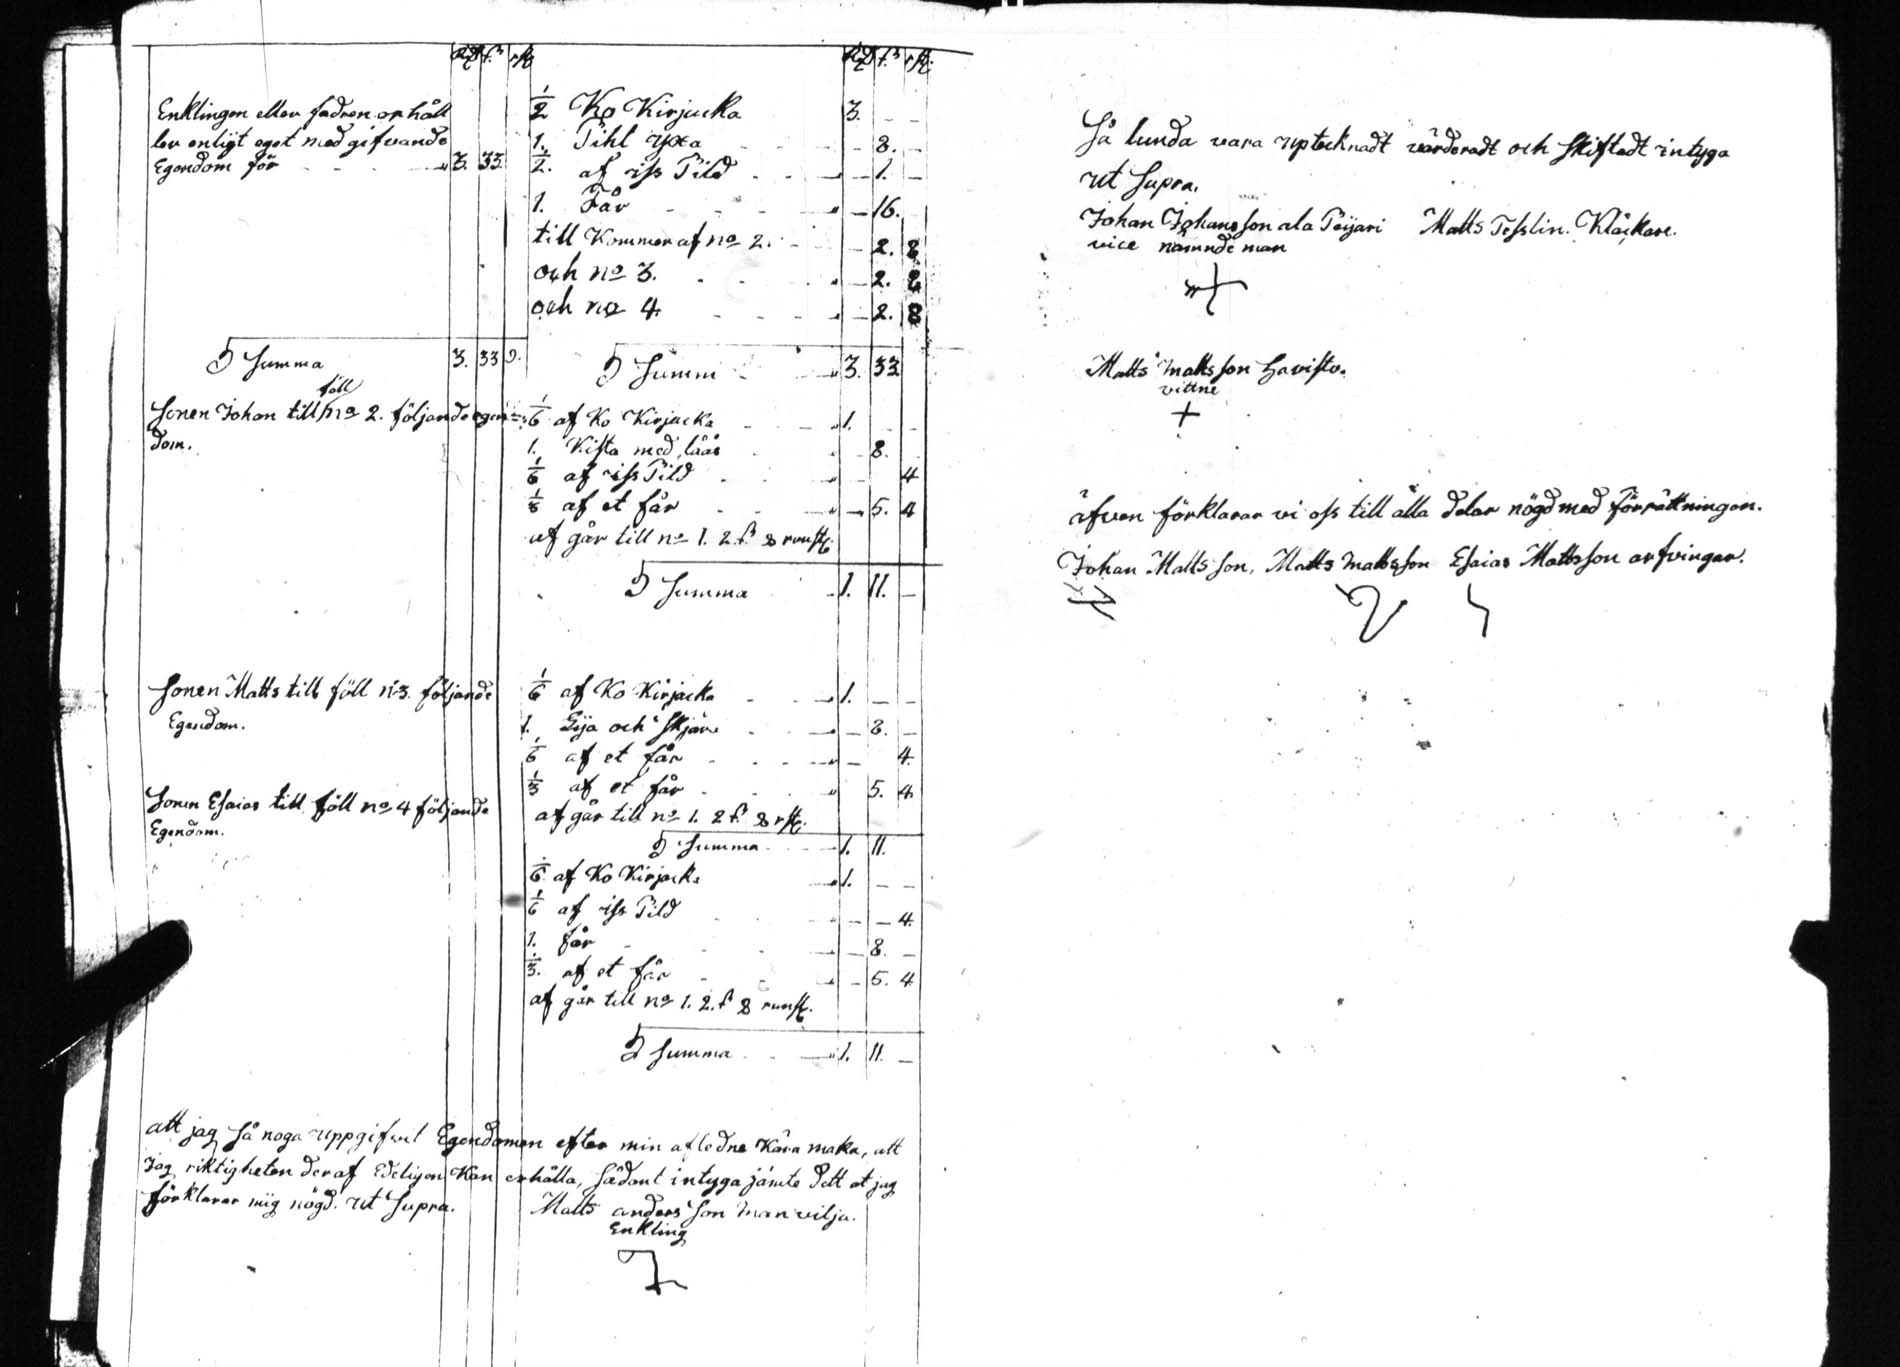 Enklingen eller fadren erhåll
ler enligt eget medgifvande
Egendom för 3. 33.
1/2 Ko Kirjacka 3. – –
1. Tihl yxa – 8. –
1/2. af iss Tild – 1. –
1. Får – 16.
till Kommer af no 2. – 2. 8
och no 3. – 2. 8
och no 4. – 2. 8
Summa 3. 33 9.
Summ 3. 33
föll
Sonen Johan till no 2. följande egen=
dom.
1/6 af Ko Kirjacka 1. – –
1. Kista med låås – 8. –
1/6 af iss Tild 4
1/3 af et får – 5. 4
af går till no 1. 2 ß 8 runst.
Summa 1. 11. –
Sonen Matts till föll no 3. följande
Egendom.
1/6 af Ko Kirjacka 1. – –
1. Lija och Skjära – 8. –
1/6 af et får – 4.
1/3 af et får 5. 4
af går till no 1. 2 ß 8 rst.
Summa 1. 11.
Sonen Esaias till föll no 4 följande
Egendom.
1/6 af Ko Kirjacka 1. – –
1/6 af iss Tild – – 4.
1. får – 8. –
1/3. af et får – 5. 4
af går till no 1. 2. ß 8 runst.
Summa 1. 11. –
att jag så noga uppgifvit Egendomen efter min afledne Kära maka, att
jag riktigheten deraf Edeligen Kan erhålla, sådant intyga jämte dett at jag
förklarar mig nögd. ut Supra. Matts andersson Manvilja.
Enkling
Så lunda vara uptecknadt värderadt och skiftadt intyga
ut Supra.
Johan Johansson ala Peijari Matts Tesslin. Kläckare.
vice nämndeman
Matts Mattsson Havisto.
vittne
äfven förklarar vi oss till alla delar nögd med förrättningen.
Johan Mattsson, Matts Mattsson Esaias Mattsson arfvingar.